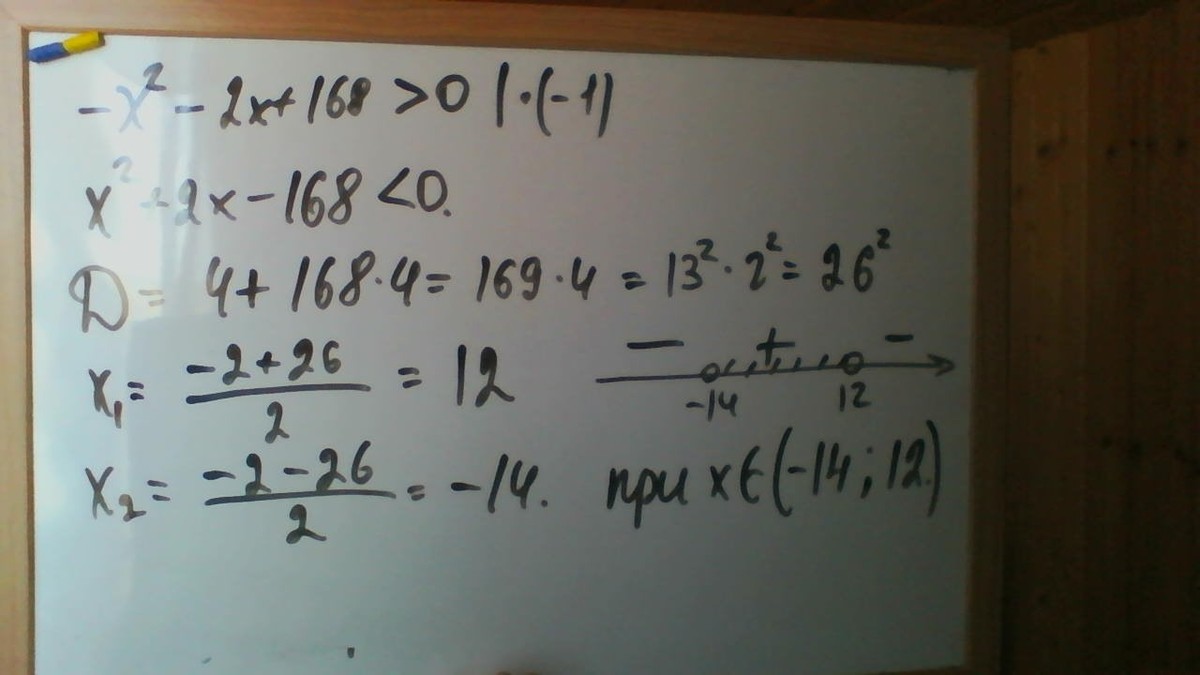 -x² - 2x+168 >0 |·(-1)
x² +2x-168 <0.
D= 4+ 168·4= 169·4 = 13²·2²= 26²
x₁= (-2+26)/2 = 12
— + -
-14 12
x₂= (-2-26)/2 = -14. при x∈(-14; 12)